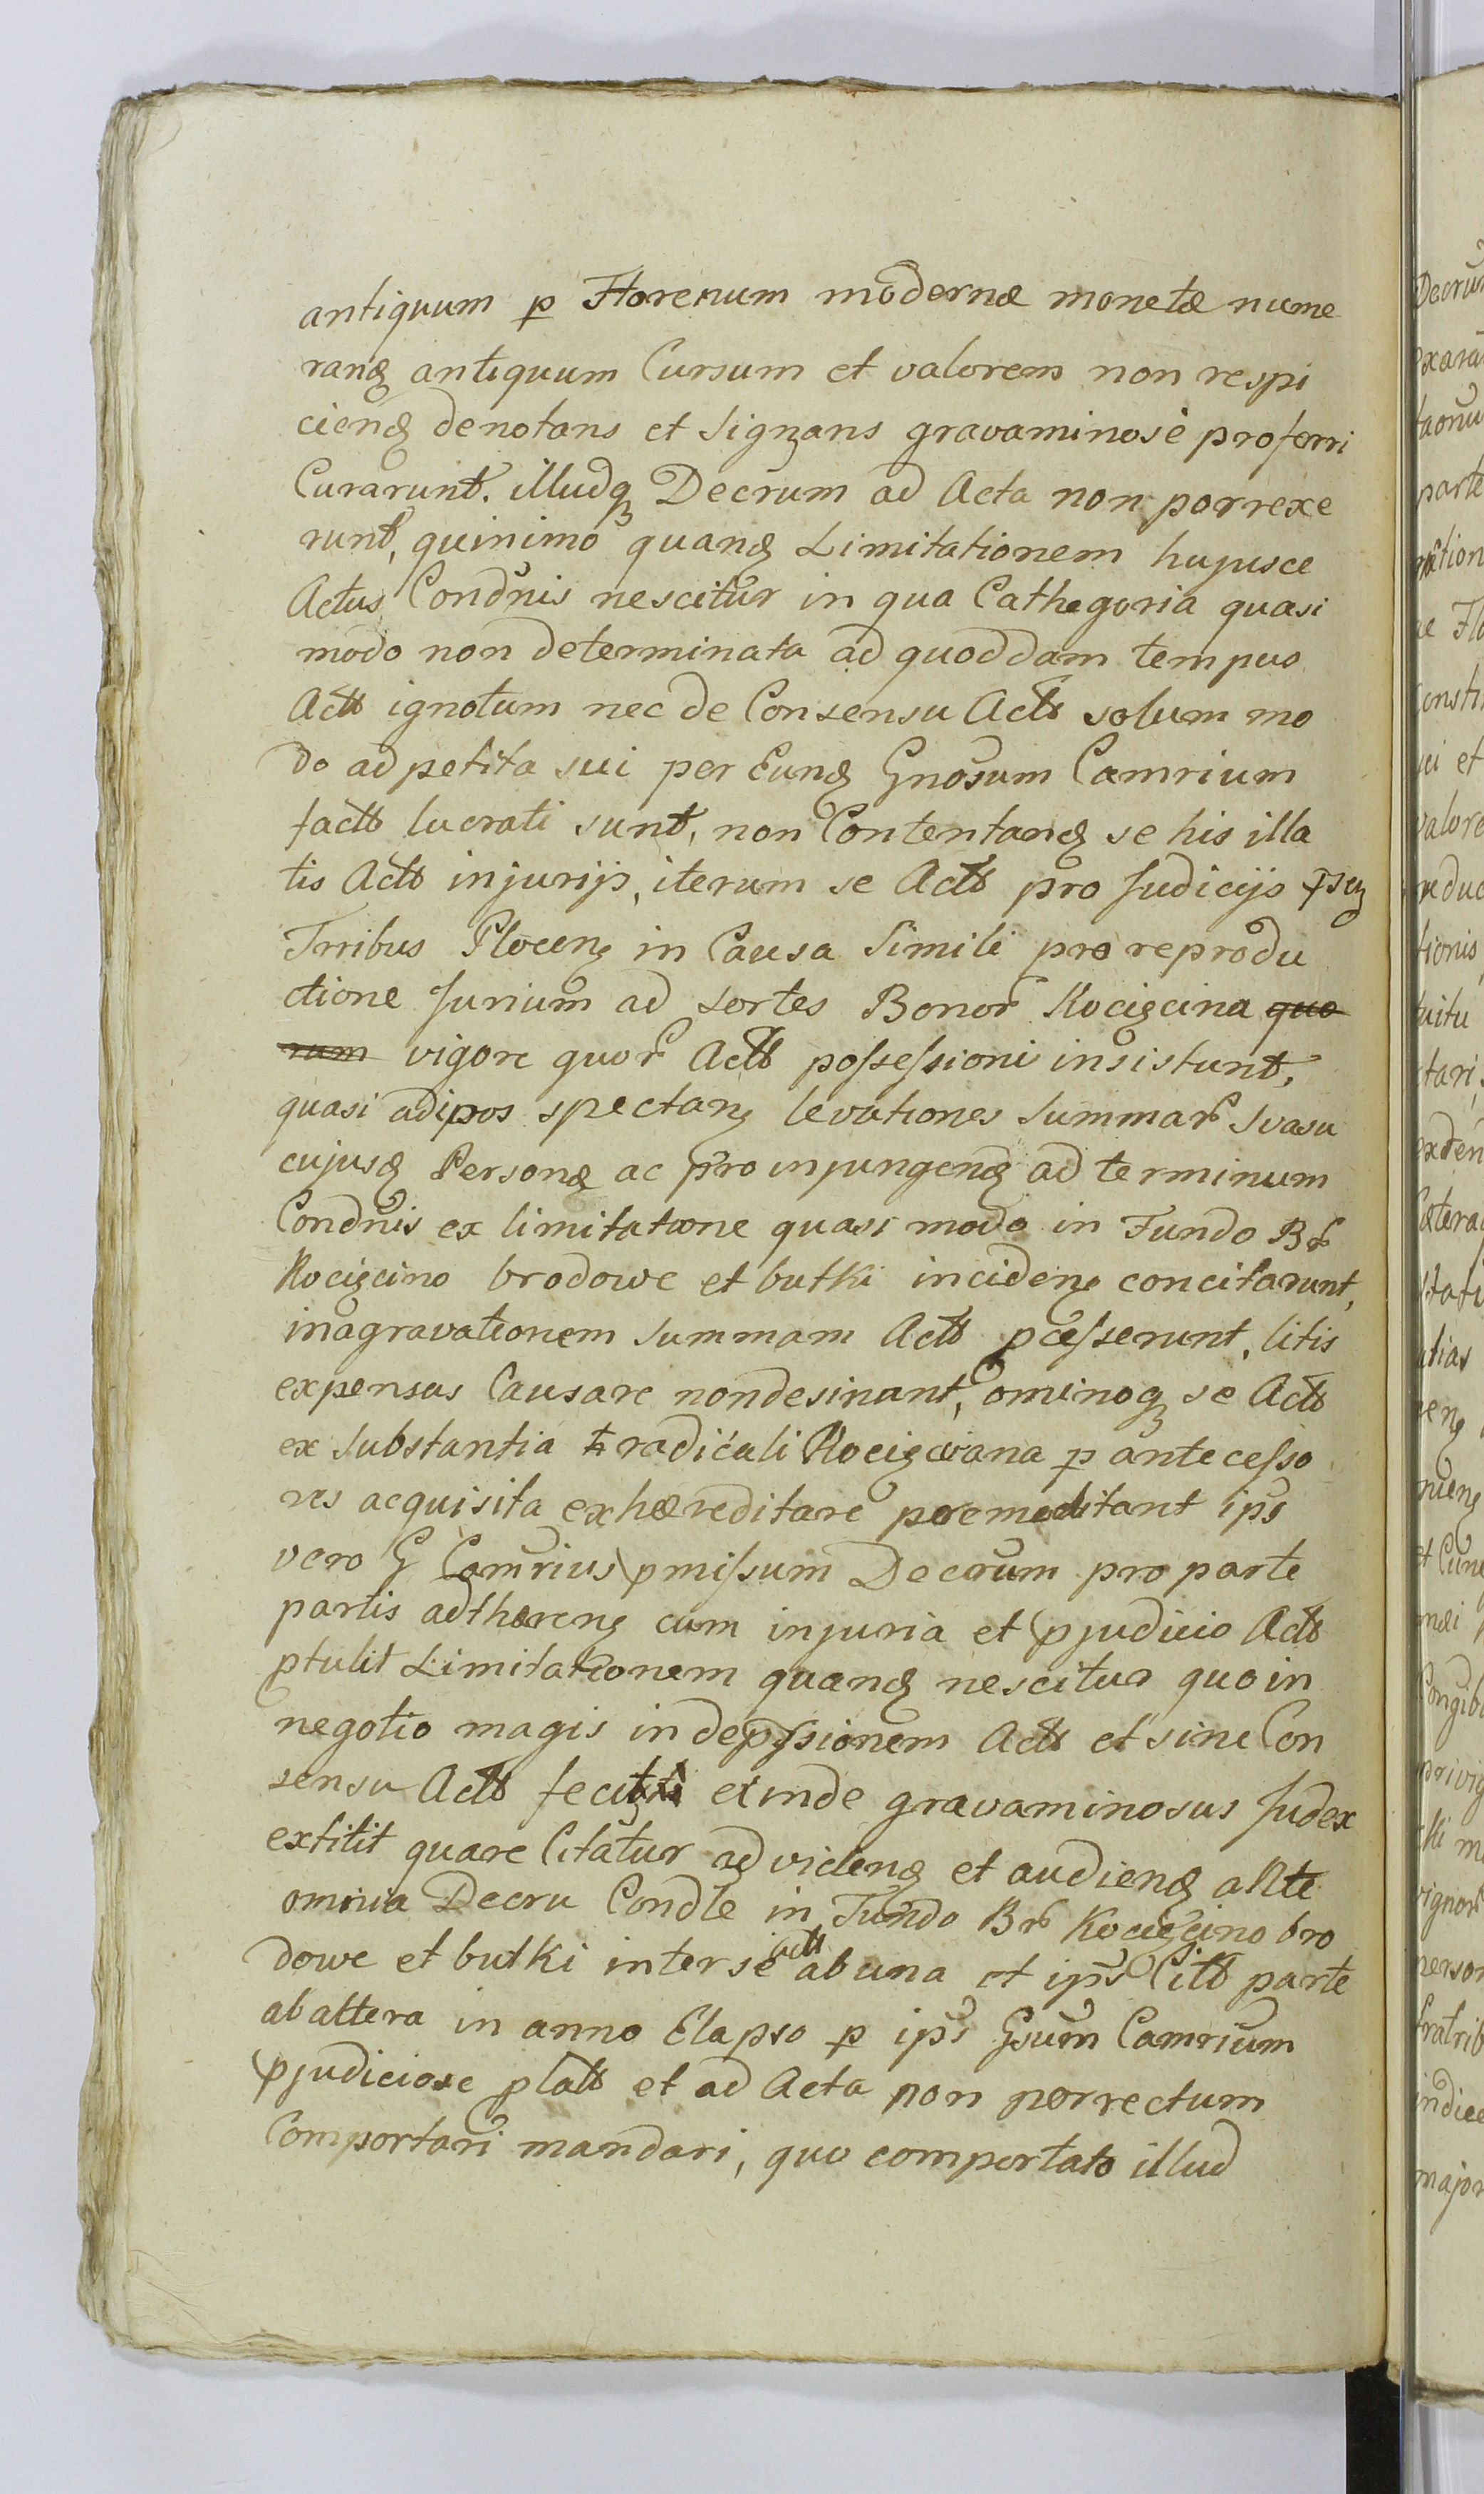 antiquum p Florenum modernæ monetæ nume
rand antiquum Cursum et valorem non respi
ciend denotans et Signans gravaminosè proferri
Curarunt. illudq Decrum ad Acta non porrexe
runt, quinimo quand Limitationem hujusce
Actus Condnis nescitur in qua Cathegoria quasi
modo non determinata ad quoddam tempus
Actt ignotum nec de Consensu Actt solum mo
do ad petita sui per Eund Gnosum Camrium
factt lucrati sunt, non Contentand se his illa
tis Actt injurijs, iterum se Actt pro Judicijs
Trribus Plocen in Causa Simili pro reprodu
ctione Jurium ad sortes Bonor Kocięcina quo
rum vigore quor Actt possessioni insistunt,
quasi ad ipos spectan levationes Summar Svasu
cujusd Personæ ac pro injungend ad terminum
Condnis ex limitatione quasi modo in Fundo Br
Kocięcino brodowe et butki inciden concitarunt,
in agravationem Summam Actt pcesserunt, litis
expensas Causare non desinunt, ominoq se Actt
ex Substantia radicali Kocięciana p antecesso
res acquisita exhæreditare premeditant ips
vero G Camrius pmissum Decrum pro parte
partis adthæren cum injuria et pjudicio Actt
ptulit Limitationem quand nescitur quo in
negotio magis in depssionem Actt et sine Con
sensu Actt fecit exinde gravaminosus Judex
extitit quare Citatur ad vidend et audiend allte
omnia Decru Condle in Fundo Br Kocięcino bro
dowe et butki inter se actt ab una et ips Citt parte
ab altera in anno Elapso p ips Gsum Camrium
pjudiciose platt et ad Acta non porrectum
Comportari mandari, quo comportato illud